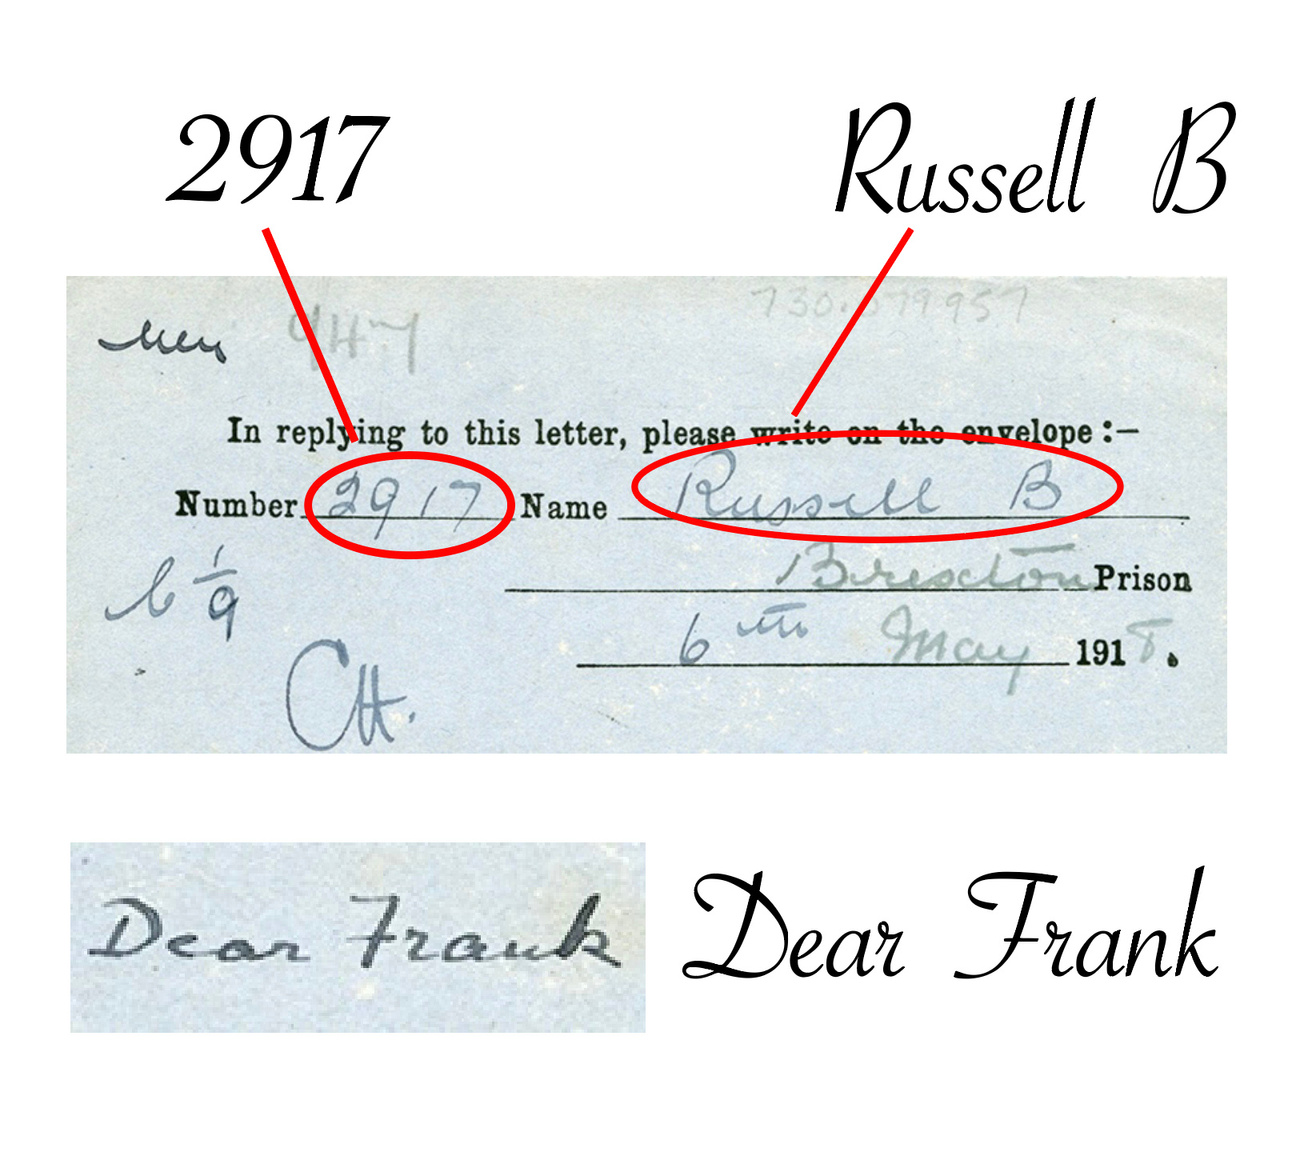 2917 Russell B
947 730.079957
In replying to this letter, please write on the envelope :—
Number 2917 Name Russell B
Brixton Prison
C 1/9
6th May 1918.
CH.
Dear Frank Dear Frank